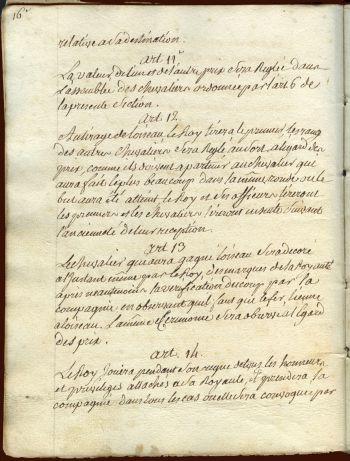 16.
relative a sa destination.
art 11.
La valeur de l'un et de l'autre prix sera Reglée dans
l'assemblée des chevaliers par l'art 6 de
la presente Section.
art. 12.
Au tirage de l'oiseau, le Roy tirera le premier, le rang
des autres chevaliers sera Reglé au sort, a legard des
prix, comme ils doivent apartenir au chevalier qui
aura fait le plus beau coup dans la même ronde ou le
but aura été atteint, le Roy et ses officiers tireront
les premiers et les chevaliers tireront ensuite suivant
l'ancienneté de leur reception.
art 13
Le chevalier qui aura gagné l'oiseau sera decoré
a l'instant même par le Roy, des marques de la Royauté
après neantmoins la verification du coup par la
compagnie, en observant qu'il faut que le fer, tienne
a l'oiseau. La même Ceremonie sera observée a l'égard
des prix.
art. 14.
Le Roy jouira pendant son regne de tous les honneurs
et privileges attachés a sa Royauté, il presidera la
compagnie dans tous les cas ou elle sera convoquée par